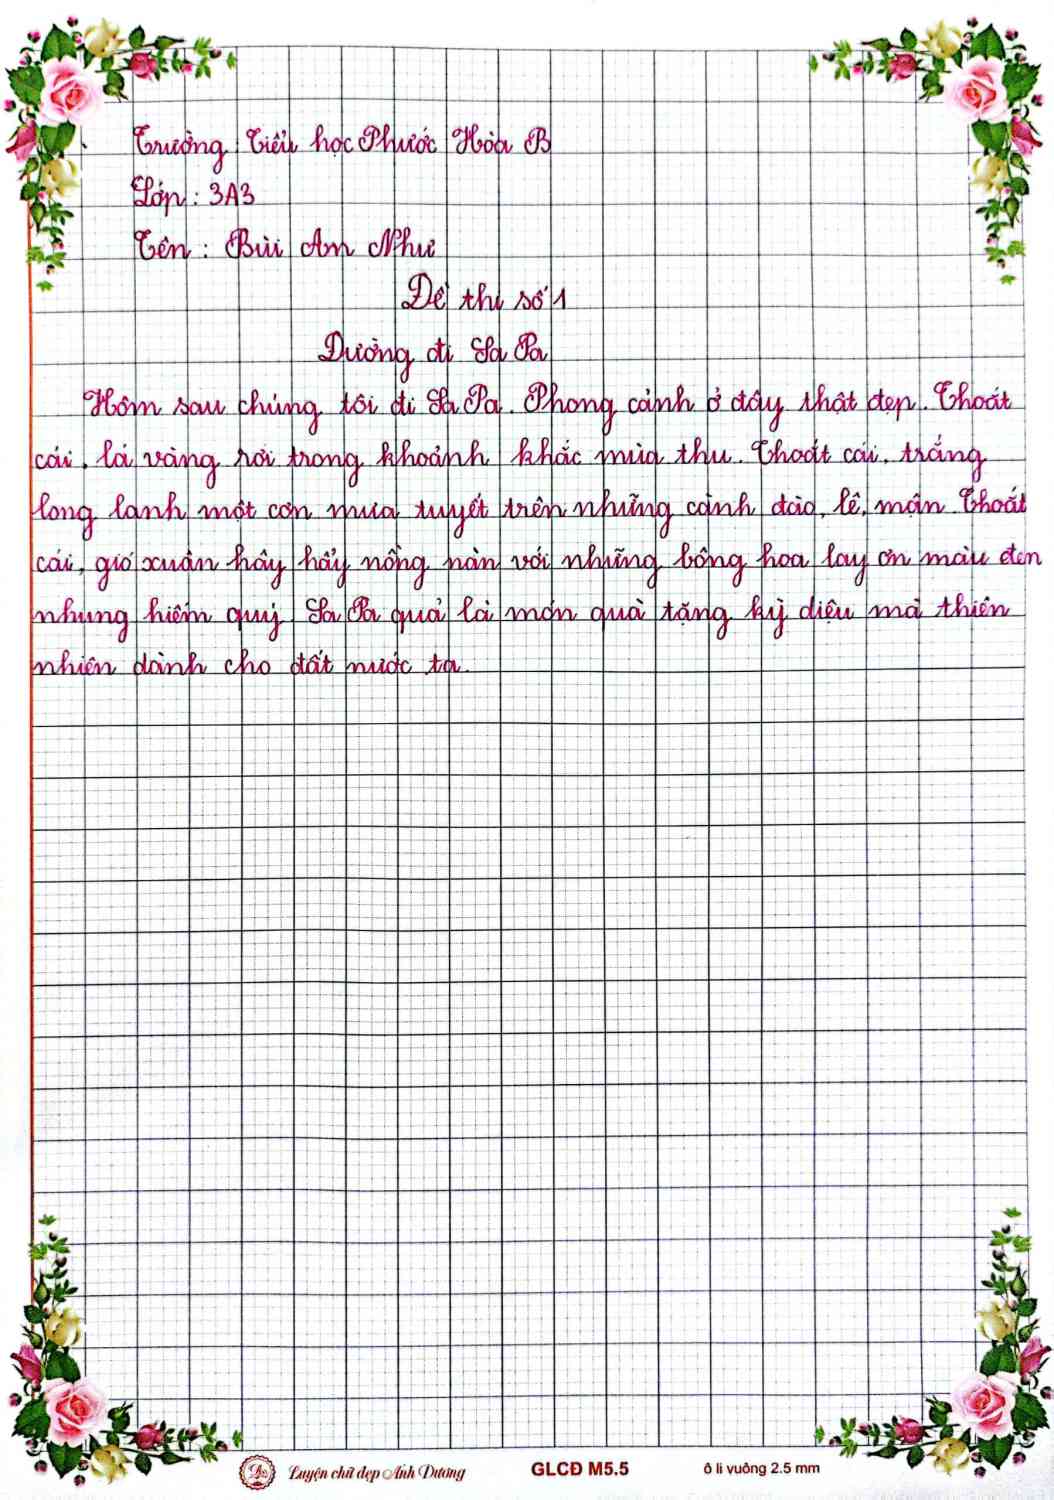 Trường Tiểu học Phước Hòa B
Lớp : 3A3
Tên : Bùi An Như
Đề thi số 1
Đường đi Sa Pa
Hôm sau chúng tôi đi Sa Pa. Phong cảnh ở đây thật đẹp. Thoắt
cái, lá vàng rơi trong khoảnh khắc mùa thu. Thoắt cái, trắng
long lanh một cơn mưa tuyết trên những cành đào, lê, mận. Thoắt
cái, gió xuân hây hẩy nồng nàn với những bông hoa lay ơn màu đen
nhung hiếm quý. Sa Pa quả là món quà tặng kỳ diệu mà thiên
nhiên dành cho đất nước ta.
Luyện chữ đẹp Ánh Dương
GLCĐ M5.5
ô li vuông 2.5 mm